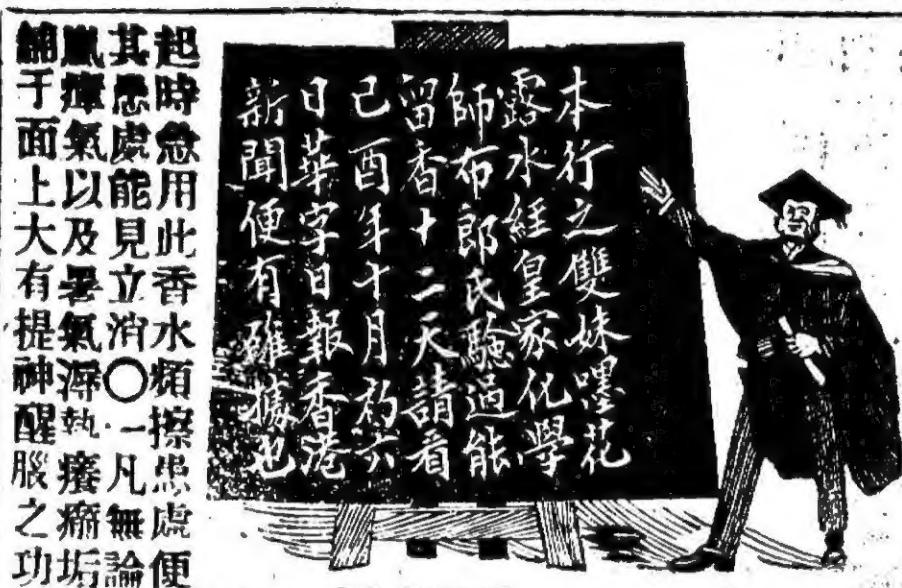 本行之雙妹嚜花
露水經皇家化學
師布郎氏驗過能
留香十二天請看
己酉年十月初六
日華字日報香港
新聞便有確據也
起時急用此香水頻擦患處便
其患處能見立消〇一凡無論
嵐瘴氣以及暑氣溽熱癢痱垢
面上大有提神醒腦之功